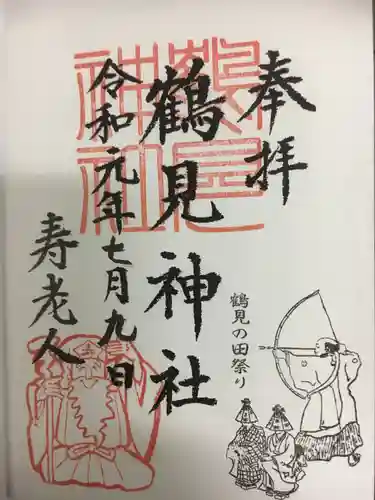 奉拝
鶴見神社
鶴見神社
令和元年七月九日
寿老人
鶴見の田祭り